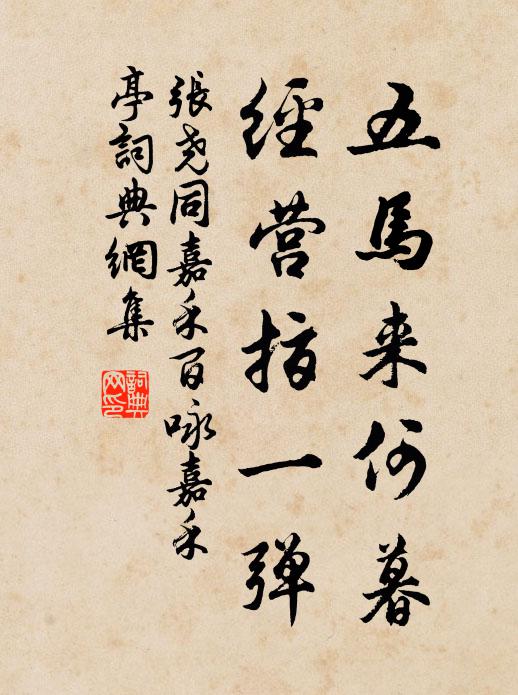 五馬来何暮
經营指一弹
張尧同嘉禾百咏嘉禾
亭詞典網集
詞典网印